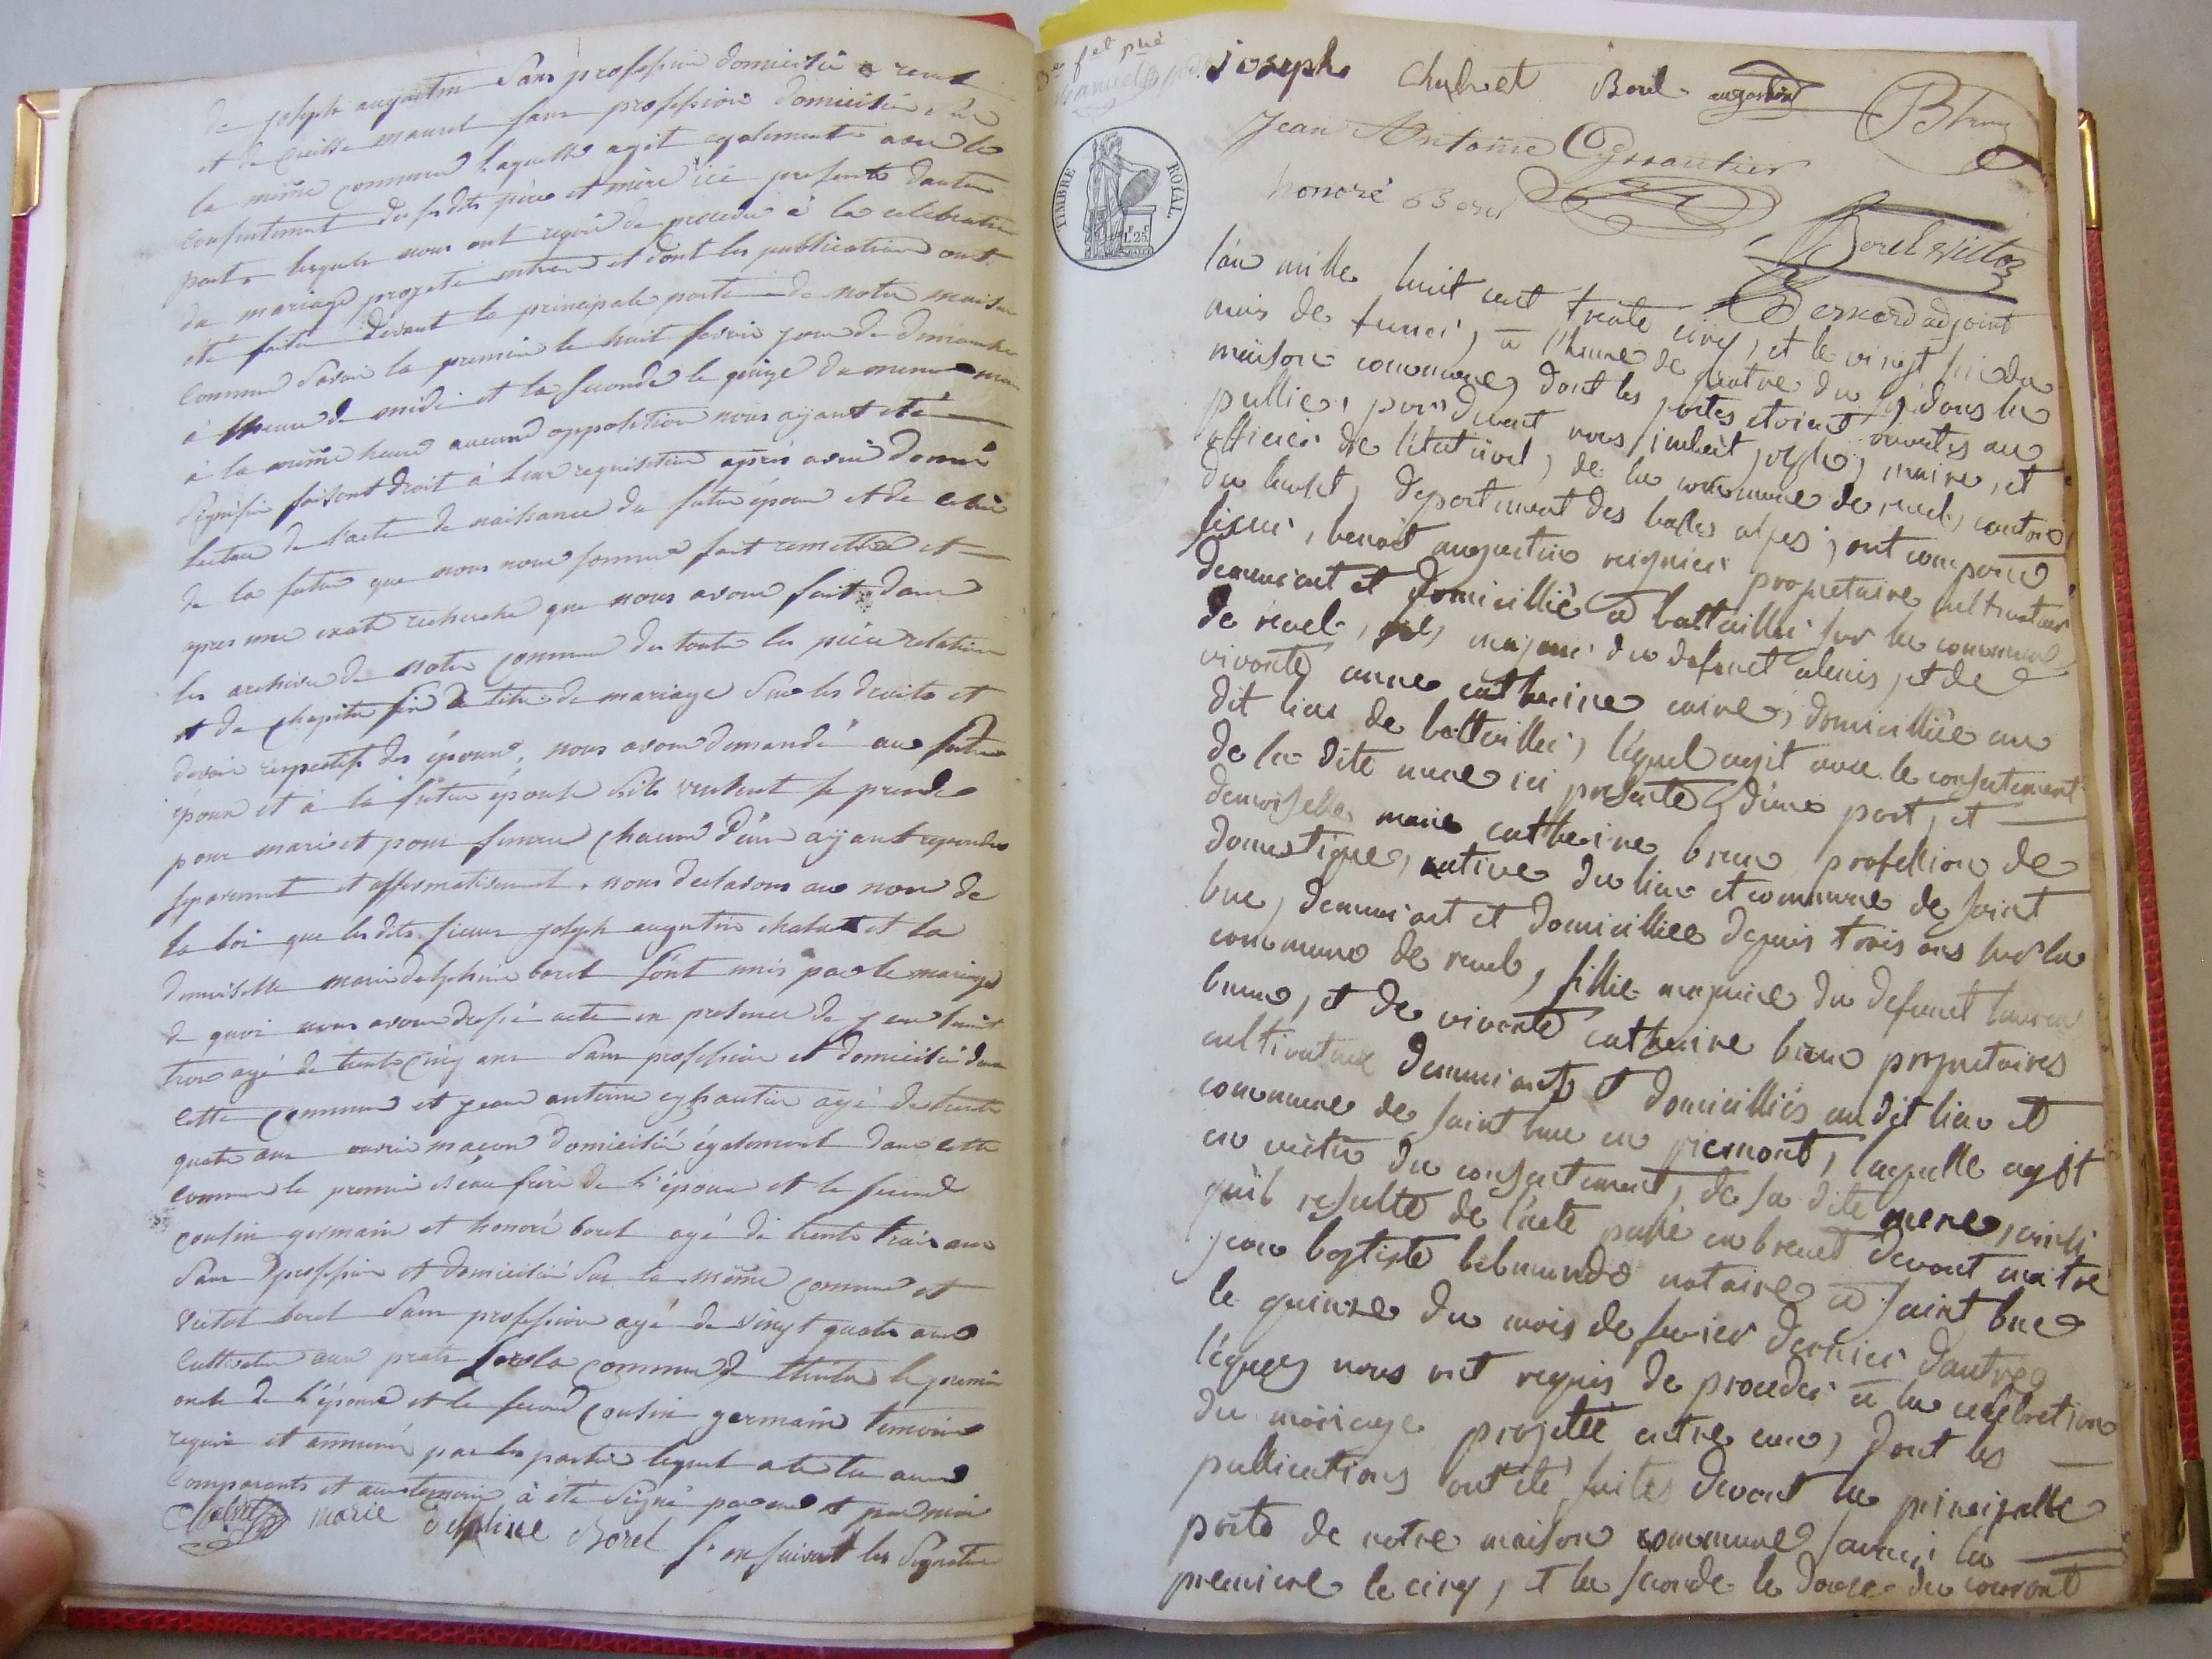 de joseph augustin Sans profession domicilié a revel
et de Cecille maurel sans profession domiciliée sur
la même commune laquelle agit egalement avec le
consentement desdits père et mère ici presents dautre
part, lesquels nous ont requis de proceder à la celebration
du mariage projeté entreux et dont les publications ont
été faites devant la principale porte de notre maison
commune Savoir la premiere le huit fevrier jour de dimanche
à lheure de midi et la seconde le quinze du meme mois
à la même heure aucune opposition nous ayant été
Signifié faisant droit à leur requisition après avoir donné
lecture de l'acte de naissance du futur époux et de celui
de la future que nous nous sommes fait remettre et
apres une exate recherche que nous avons fait dans
les archives de notre commune de toutes les pièces relatives
et du chapitre six du titre de mariage Sur les droits et
devoirs respectifs des époux, nous avons demandé au futur
époux et à la future épouse Sils veulent se prendre
pour mari et pour femme chacun d'eux ayant repondu
separement et affirmativement, nous declarons au nom de
la loi que lesdits sieur joseph augustin chabret et la
demoiselle marie delphine borel sont unis par le mariage
de quoi nous avons dressé acte en presence de jean
agé de trente cinq ans Sans profession et domicilié dans
cette commune et jean antoine eyssautier agé de trente
quatre ans ouvrier maçon domicilié également dans cette
commune le premier beau frère de l'époux et le second
cousin germain et honoré borel agé de trente trois ans
Sans profession et domicilié Sur la même commune et
victor borel Sans profession agé de vingt quatre ans
Cultivateur aux prats sur la commune de le premier
oncle de l'épouse et le second cousin germain temoins
requis et ammenés par les parties lequel acte lu aux
Comparants et aux temoins à été Signé par eux et par moi
Chabret marie delphine Borel S'ensuivent les Signatures
joseph Chabret Borel augustin
Jean Antoine Eyssautier
honoré Borel
Borel Victor
Bernard adjoint
TIMBRE ROYAL
1.25
l'an mille huit cent trente cinq, et le vingt six du
mois de fevrier, a l'heure de quatre du soir, dans la
maison commune, dont les portes etoient ouvertes au
public, par devant nous joseph, maire, et
officier de l'état civil, de la commune de revel, canton
du lauzet, departement des basses alpes, ont comparu
sieur, benoit augustin reynier propriétaire cultivateur
demeurant et domicillié a battaillei sur la commune
de revel, fils majeur du defunct alexis, et de
vivante anne catherine caire, domicilliée au
dit lieu de battaillei, lequel agit avec le consentement
de la dite mere ici presente d'une part, et
demoiselle marie catherine brun profession de
domestique, native du lieu et commune de saint
bue, demeurant et domicilliee depuis trois ans sur la
commune de revel, fille majeure du defunct
brun, et de vivante catherine brun propriétaires
cultivateurs demeurants et domicilliés au dit lieu et
commune de saint bue en piemont, laquelle agit
en vertu du consentement, de sa dite mere, ainsi
qu'il resulte de l'acte passé en brevet devant maitre
jean baptiste notaire a saint bue
le quinze du mois de fevrier dernier dautre
lequels nous ont requis de proceder a la celebration
du mariage projetté entre eux, dont les
publications ont été faites devant la principalle
porte de notre maison commune savoir la
premiere le cinq, et la seconde le douze du courant